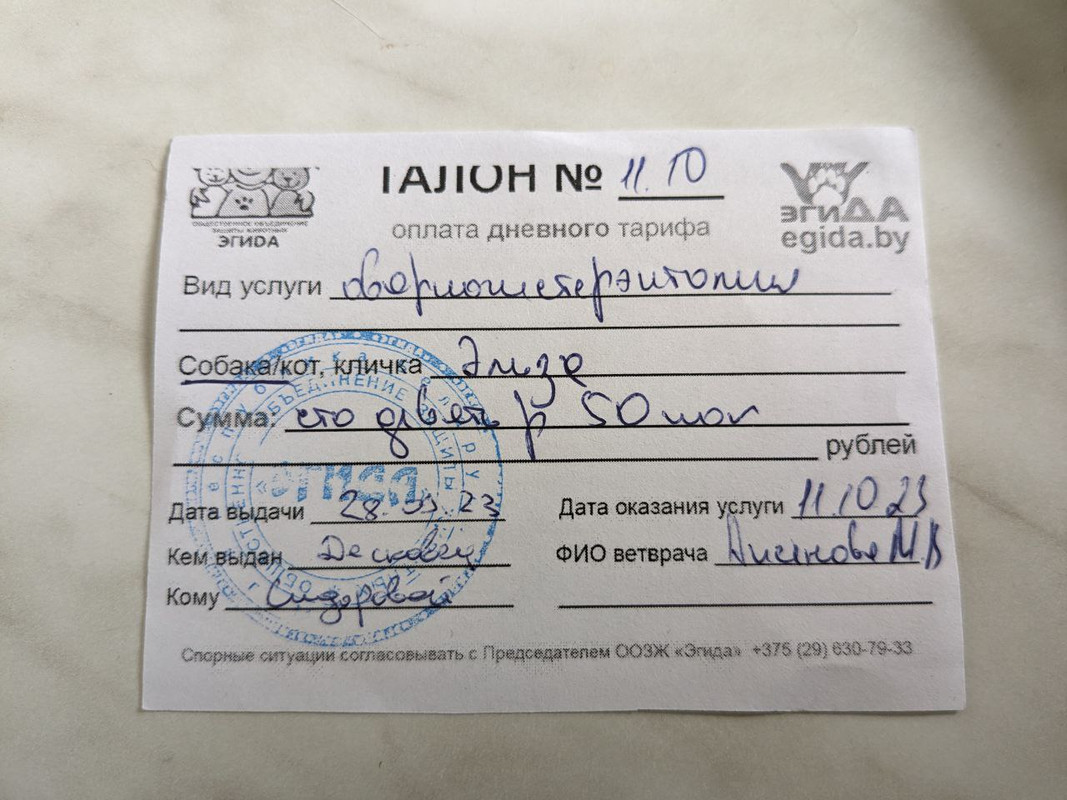 ТАЛОН № 11.10
ОБЩЕСТВЕННОЕ ОБЪЕДИНЕНИЕ
ЗАЩИТЫ ЖИВОТНЫХ
ЭГИДА
ЭГИДА
egida.by
оплата дневного тарифа
Вид услуги овариогистерэктомия
Собака/кот, кличка Элиза
Сумма: сто девять р 50 коп
рублей
Дата выдачи 28.09.23
Дата оказания услуги 11.10.23
Кем выдан
ФИО ветврача М.В
Кому Сидоровой
Спорные ситуации согласовывать с Председателем ООЗЖ «Эгида» +375 (29) 630-79-33